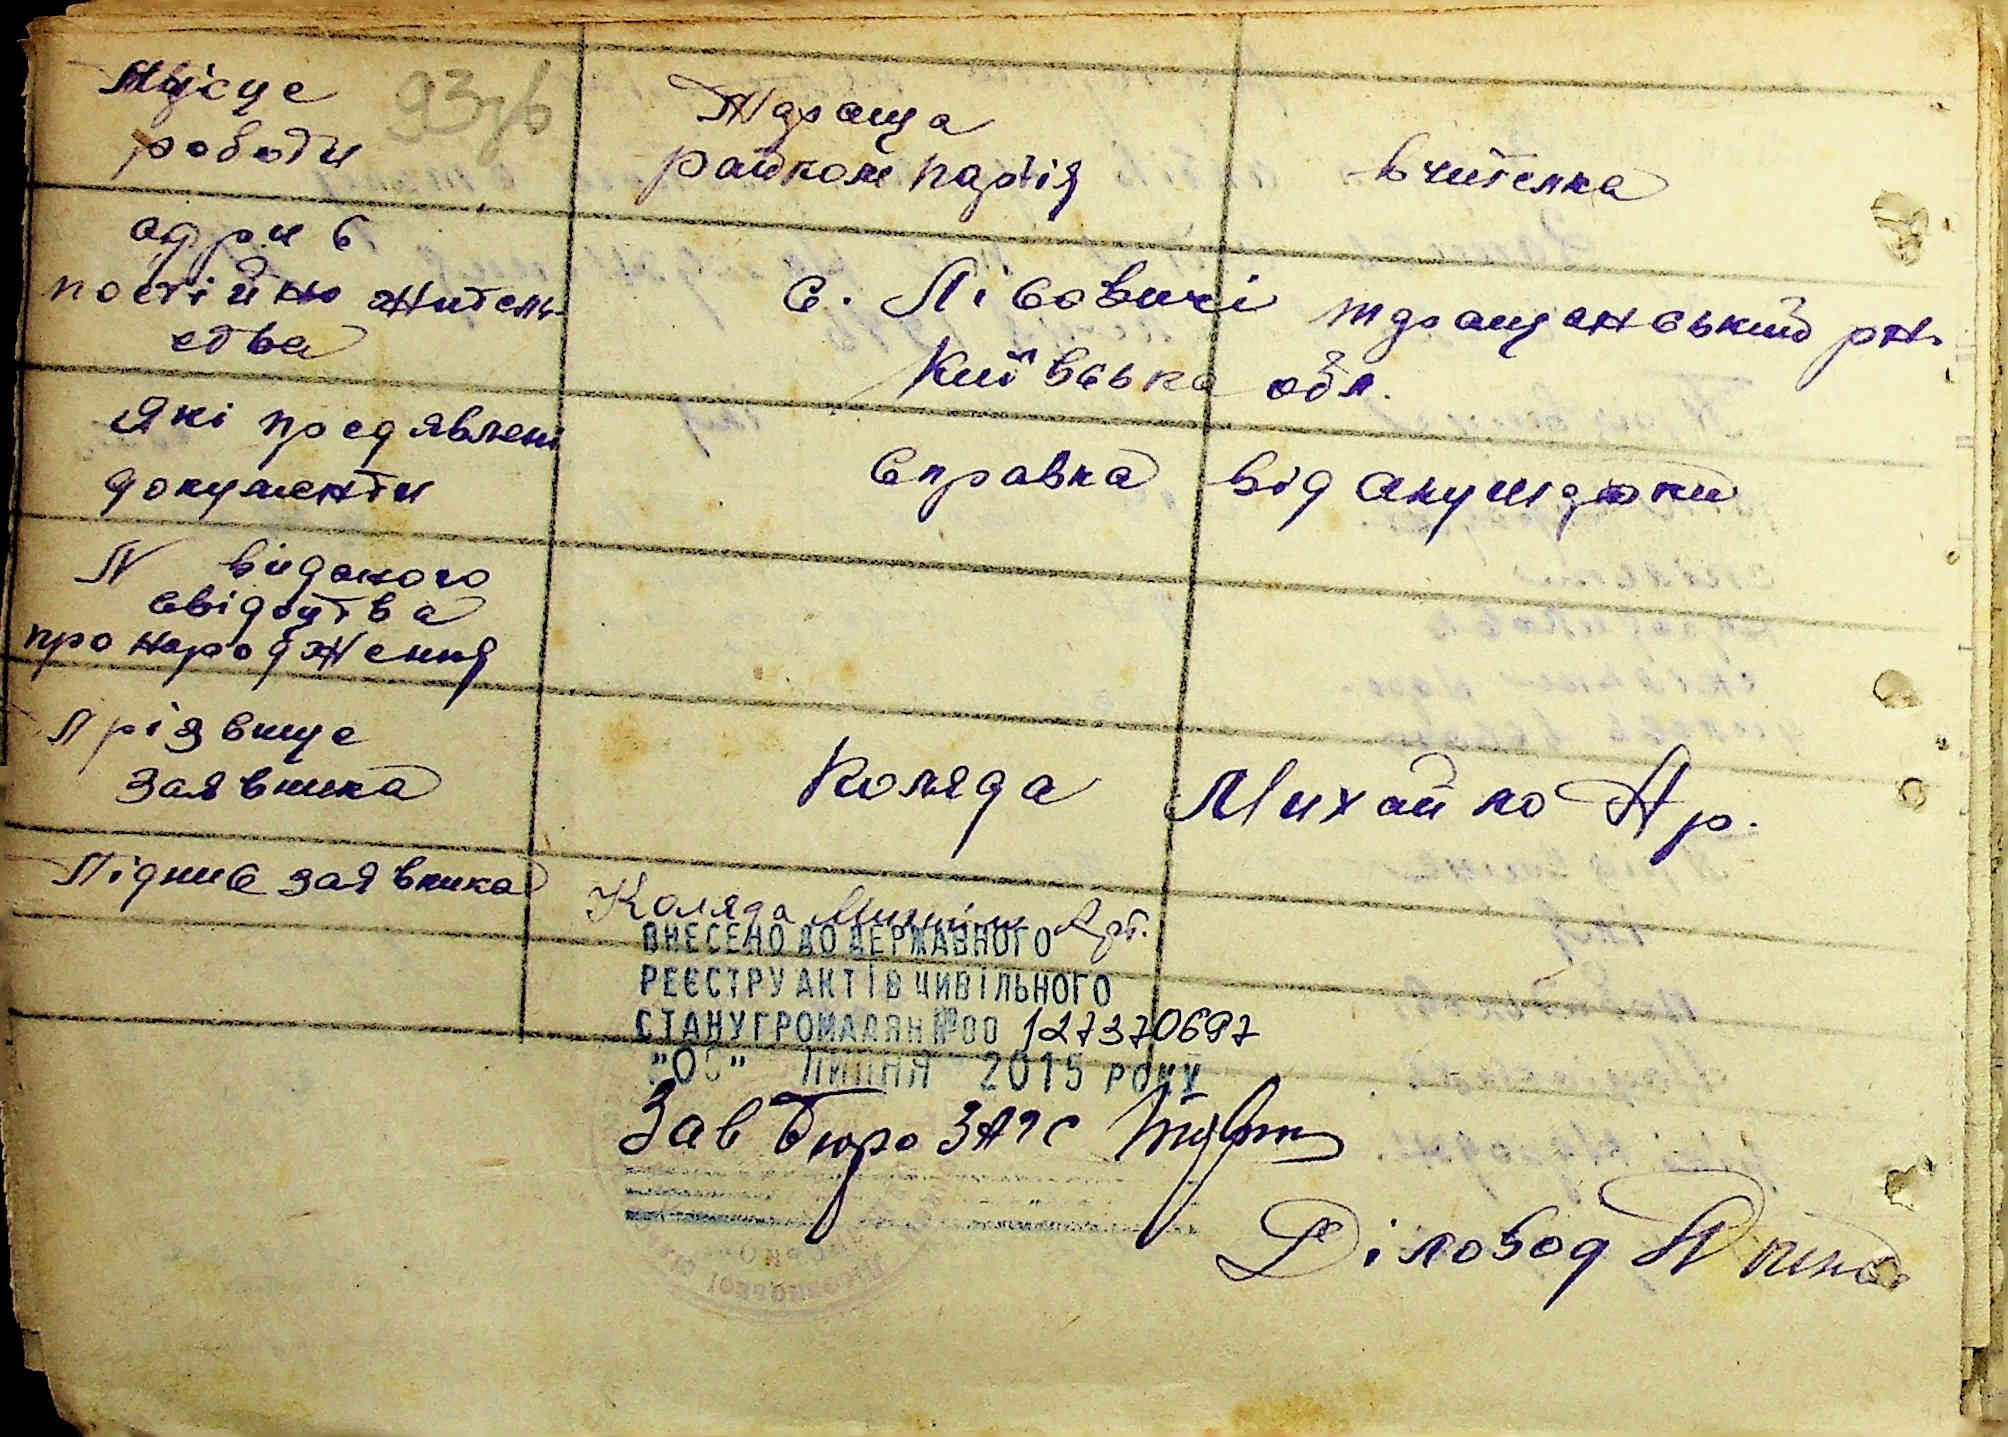 Місце
роботи
93зв
Тараща
райком партія
вчителка
адрис
постійно житель-
ства
с. Лісовичі Таращанський рн.
Київська обл.
Які предявлені
документи
Справка від акушорки
N виданого
свідоцтва
про народження
Прізвище
заявника
Коляда Михайло Ар.
Підпис заявника
Коляда Ар.
ВНЕСЕНО ДО ДЕРЖАВНОГО
РЕЄСТРУ АКТІВ ЦИВІЛЬНОГО
СТАНУ ГРОМАДЯН №00 127370697
ЛИПНЯ 2015 РОКУ
Зав бюро ЗАГС
Діловод